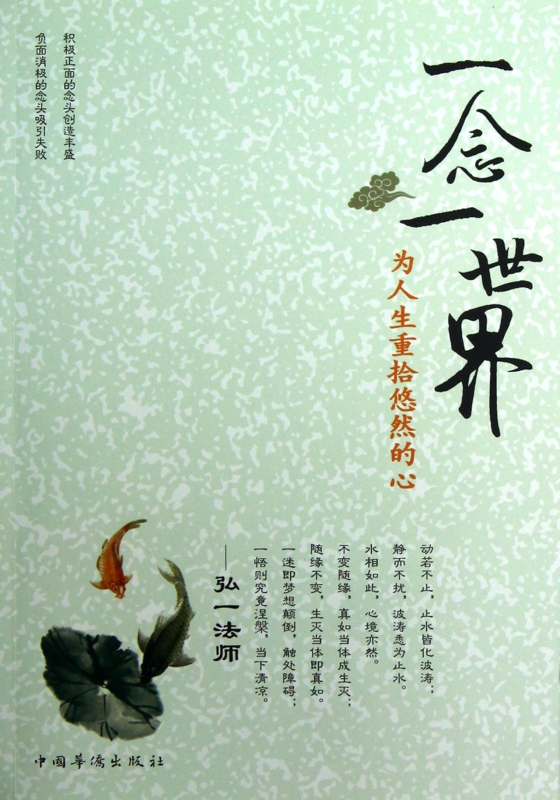 一念一世界
为人生重拾悠然的心
积极正面的念头创造丰盛
负面消极的念头吸引失败
动若不止，止水皆化波涛；
静而不扰，波涛悉为止水。
水相如此，心境亦然。
不变随缘，真如当体成生灭；
随缘不变，生灭当体即真如。
一迷即梦想颠倒，触处障碍；
一悟则究竟涅槃，当下清凉。
——弘一法师
中国华侨出版社